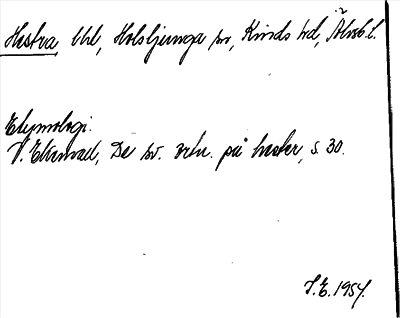 Hestra Uhl, Holsljunga sn, Kinds hd, Älvsb. l.
Etymologi.
V. Ekenvall, De sv. ortn. på hester, s. 30.
I.E. 1954.